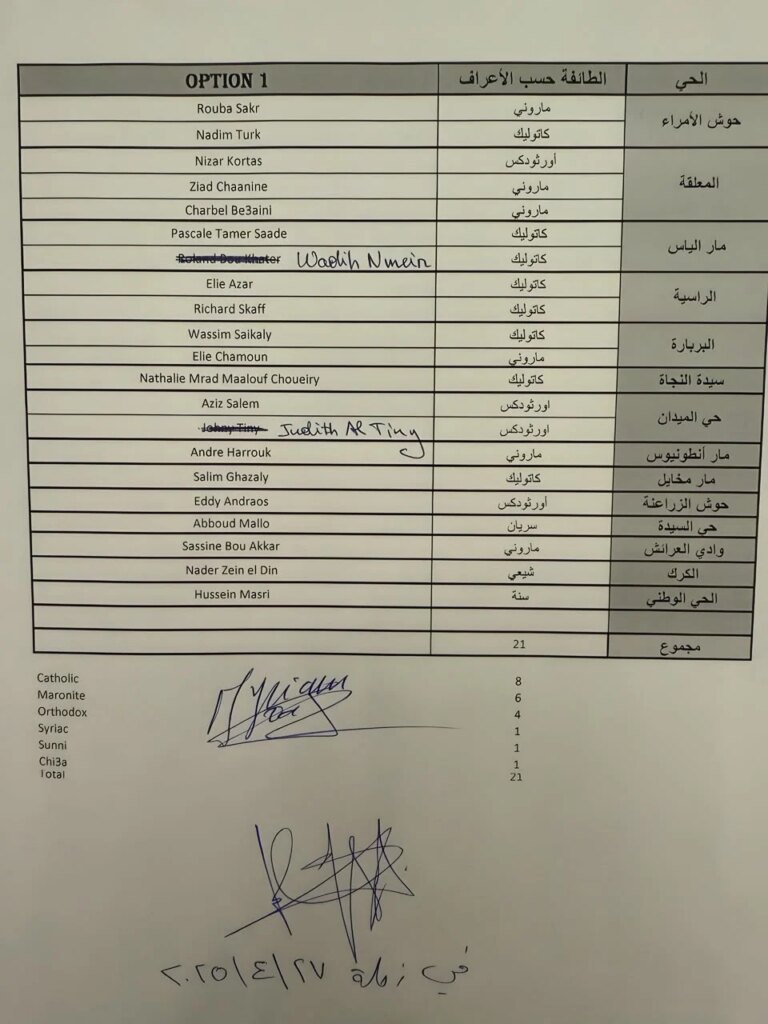 OPTION 1 الطائفة حسب الأعراف الحي
Rouba Sakr ماروني حوش الأمراء
Nadim Turk كاتوليك
Nizar Kortas أورثودكس المعلقة
Ziad Chaanine ماروني
Charbel Be3aini ماروني
Pascale Tamer Saade كاتوليك مار الياس
Roland Bou Khater Wadih Nmeir كاتوليك
Elie Azar كاتوليك الراسية
Richard Skaff كاتوليك
Wassim Saikaly كاتوليك البربارة
Elie Chamoun ماروني
Nathalie Mrad Maalouf Choueiry كاتوليك سيدة النجاة
Aziz Salem اورثودكس حي الميدان
Johny Tiny Judith Al Tiny اورثودكس
Andre Harrouk ماروني مار أنطونيوس
Salim Ghazaly كاتوليك مار مخايل
Eddy Andraos أورثودكس حوش الزراعنة
Abboud Mallo سريان حي السيدة
Sassine Bou Akkar ماروني وادي العرائش
Nader Zein el Din شيعي الكرك
Hussein Masri سنة الحي الوطني
21 مجموع
Catholic 8
Maronite 6
Orthodox 4
Syriac 1
Sunni 1
Chi3a 1
Total 21
في زحلة ٢٠٢٥/٤/٢٧